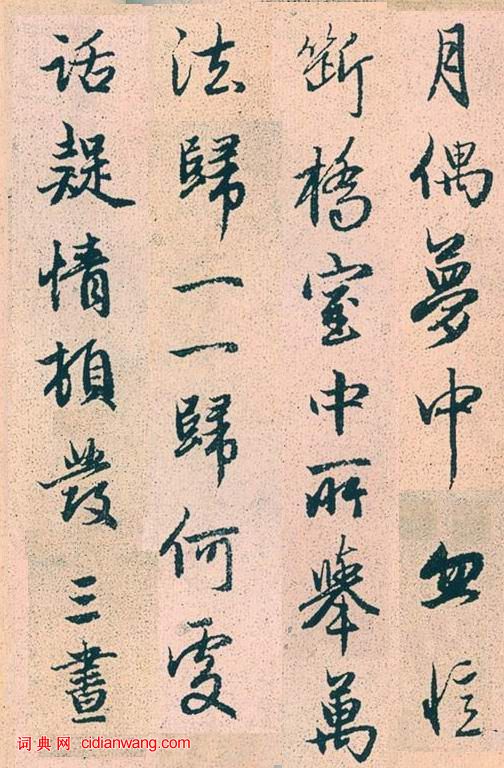 月偶夢中忽憶
斷橋室中所舉萬
法歸一一歸何處
話疑情頓發三晝
词典网 cidianwang.com